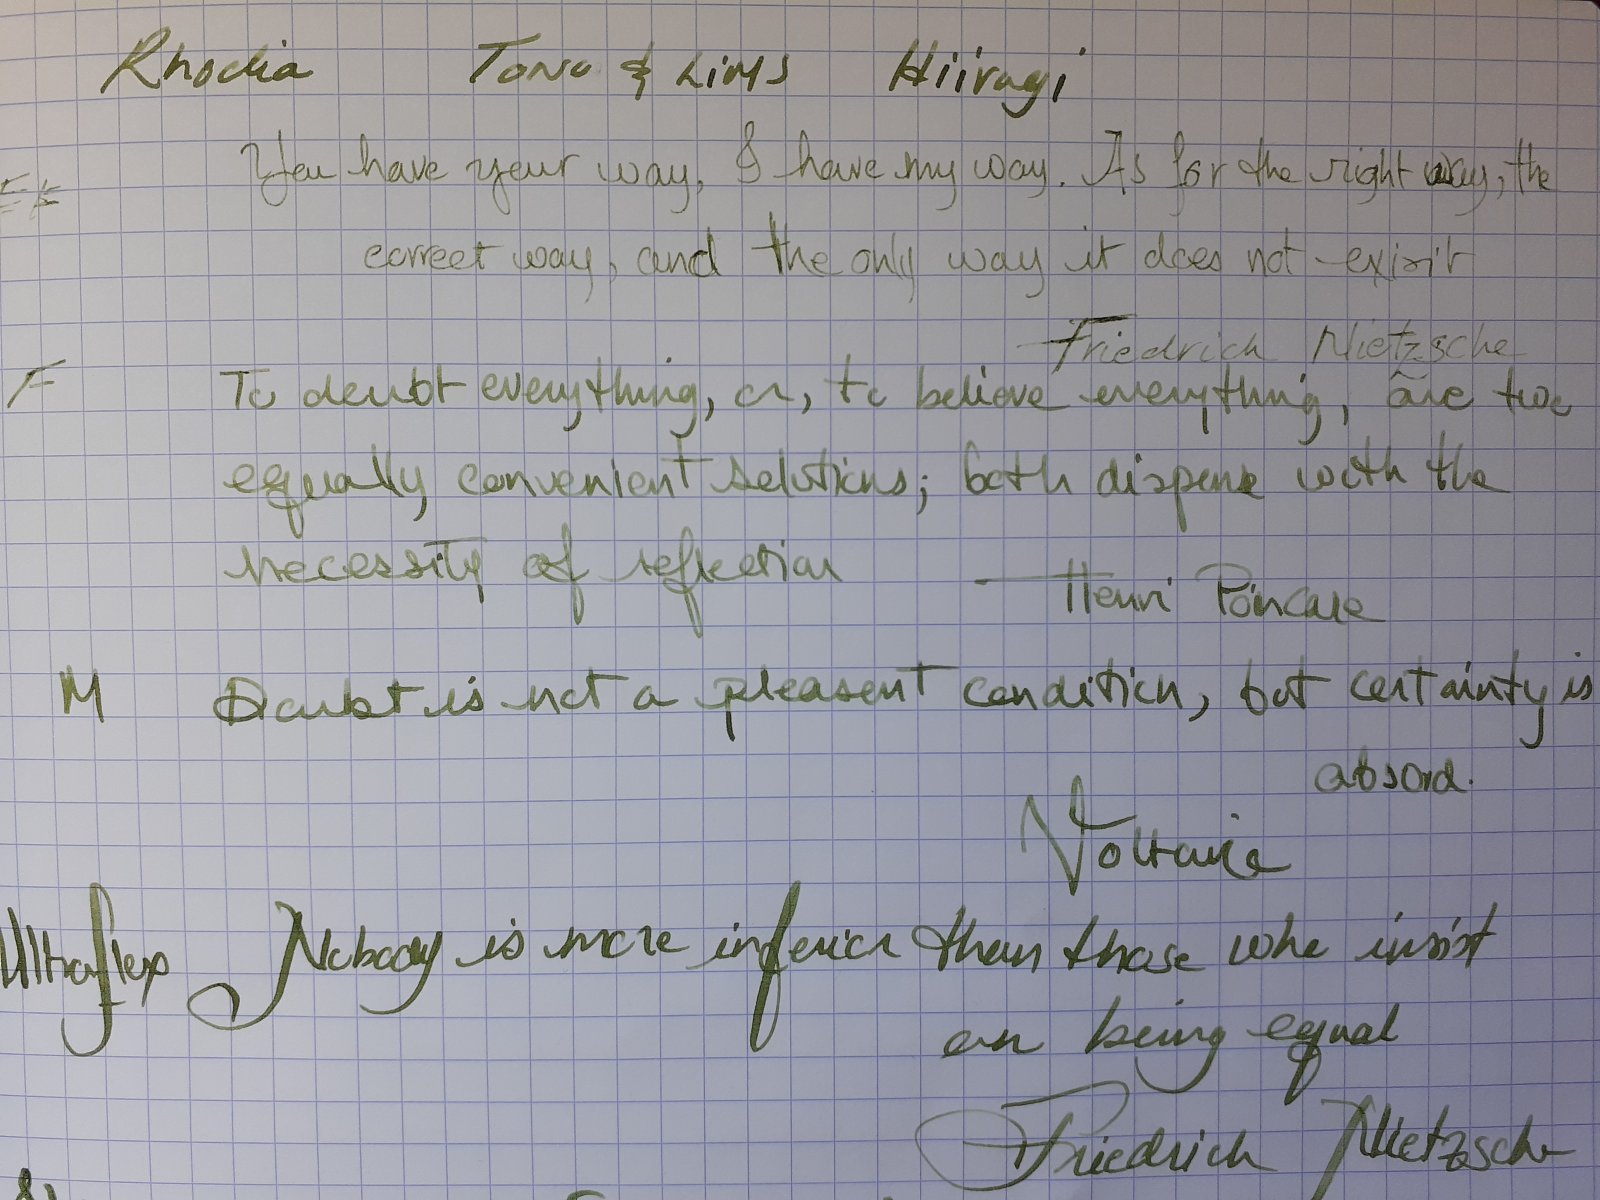 Rhodia Tono & Lims Hiiragi
EF You have your way, I have my way. As for the right way, the
correct way, and the only way it does not exisit
Friedrich Nietzsche
F To doubt everything, or, to believe everything, are two
equally convenient solutions; both dispense with the
necessity of reflection
Henri Poincare
M Doubt is not a pleasent condition, but certainty is
absurd.
Voltaire
Ultraflex Nobody is more inferior than those who insist
on being equal
Friedrich Nietzsche